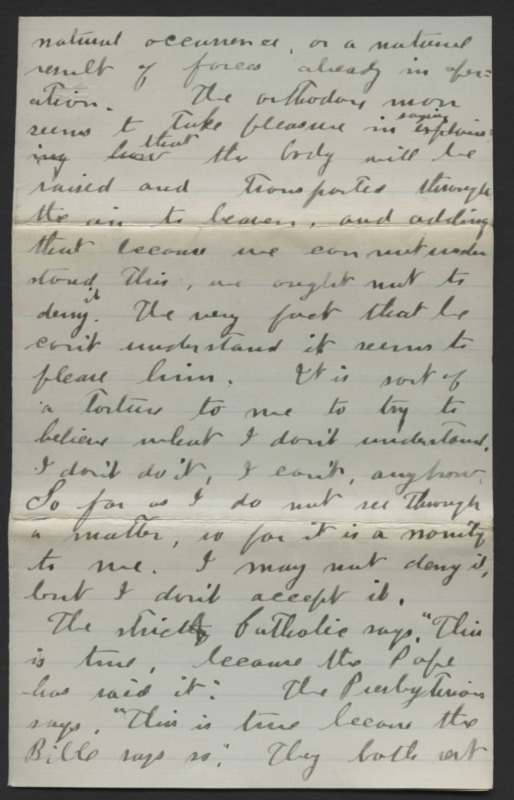 natural occurrence, or a natural
result of forces already in oper=
ation. The orthodox man
seems to take pleasure in saying explain=
ing how that the body will be
raised and transported through
the air to heaven, and adding
that because we can not under
stand this, we ought not to
deny it. The very fact that he
can't understand it seems to
please him. It is sort of
a torture to me to try to
believe what I don't understand.
I don't do it, I can't, anyhow.
So far as I do not see through
a matter, so far it is a nonity
to me. I may not deny it,
but I don't accept it.
The strict Catholic says, "This
is true, because the Pope
has said it". The Presbyterian
says, "This is true because the
Bible says so". They both rest